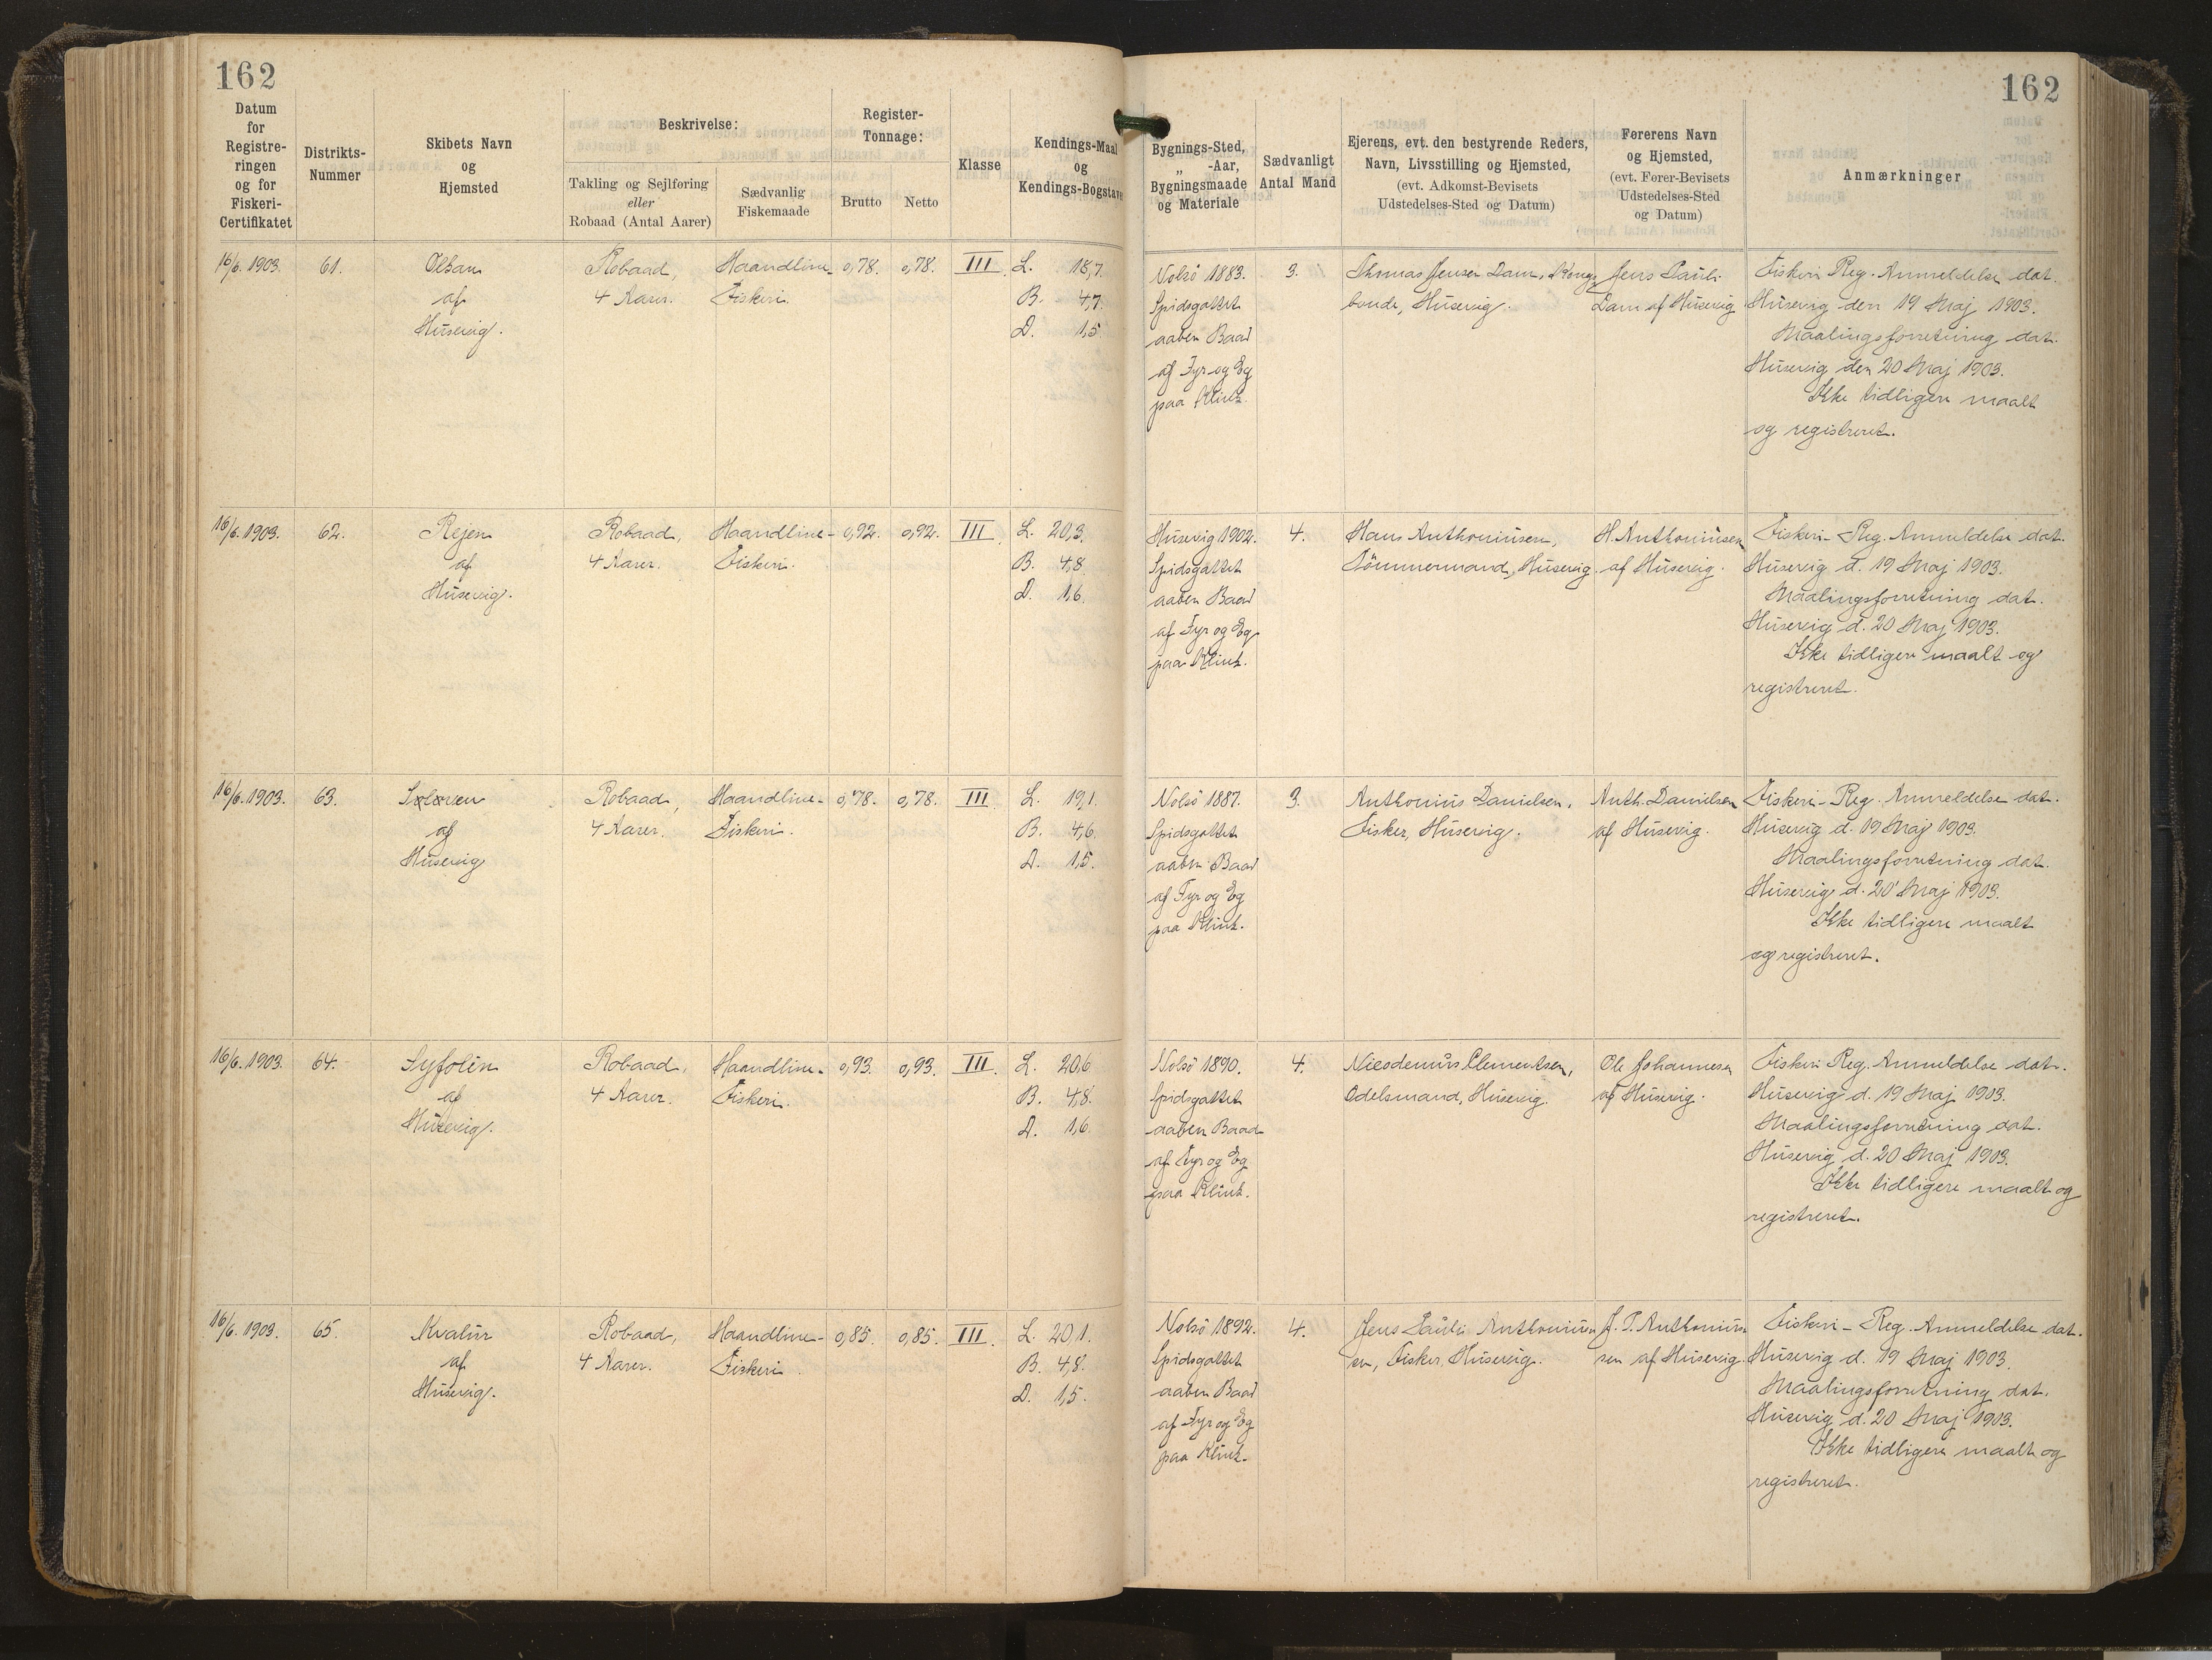 162
162
Datum
for
Registre-
ringen
og for
Fiskeri-
Certifikatet
Distrikts-
Nummer
Skibets Navn
og
Hjemsted
Beskrivelse:
Takling og Sejlføring
eller
Robaad (Antal Aarer)
Sædvanlig
Fiskemaade
Register-
Tonnage:
Brutto
Netto
Klasse
Kendings-Maal
og
Kendings-Bogstaver
Bygnings-Sted,
„ -Aar,
Bygningsmaade
og Materiale
Sædvanligt
Antal Mand
Ejerens, evt. den bestyrende Reders,
Navn, Livsstilling og Hjemsted,
(evt. Adkomst-Bevisets
Udstedelses-Sted og Datum)
Førerens Navn
og Hjemsted,
(evt. Fører-Bevisets
Udstedelses-Sted
og Datum)
Anmærkninger
16/6. 1903.
61.
af
Husevig.
Robaad,
4 Aarer.
Haandline-
Fiskeri
0,78.
0,78.
III
L. 18,7
B. 4,7
D. 1,5
Nolsö 1883.
Spidsgattet
aaben Baad
af Fyr og Eg
paa Klink.
3.
Thomas Jensen Dam, Konge-
bonde, Husevig.
Jens Pauli
Dam af Husevig
Fiskeri Reg. Anmeldelse dat.
Husevig den 19 Maj 1903.
Maalingsforretning dat.
Husevig den 20 Maj 1903.
Ikke tidligere maalt
og registreret.
16/6. 1903.
62.
Rejen
af
Husevig.
Robaad,
4 Aarer.
Haandline-
Fiskeri.
0,92.
0,92.
III
L. 20,3.
B. 4,8
D. 1,6.
Husevig 1902.
Spidsgattet
aaben Baad
af Fyr og Eg
paa Klink.
4.
Hans Anthoniusen,
Tömmermand, Husevig.
H. Anthoniusen
af Husevig.
Fiskeri-Reg. Anmeldelse dat.
Husevig d. 19 Maj 1903.
Maalingsforretning dat.
Husevig d. 20 Maj 1903.
Ikke tidligere maalt og
registreret.
16/6. 1903.
63.
Søløven
af
Husevig
Robaad,
4 Aarer.
Haandline-
Fiskeri.
0,78.
0,78.
III
L. 19,1.
B. 4,6.
D. 1,5.
Nolsö 1887.
Spidsgattet
aaben Baad
af Fyr og Eg
paa Klink.
3.
Anthonius Danielsen,
Fisker, Husevig.
Anth. Danielsen
af Husevig.
Fiskeri-Reg. Anmeldelse dat.
Husevig d. 19 Maj 1903.
Maalingsforretning dat.
Husevig d. 20 Maj 1903.
Ikke tidligere maalt
og registreret.
16/6. 1903.
64.
Syfolin
af
Husevig.
Robaad,
4 Aarer.
Haandline-
Fiskeri.
0,93.
0,93.
III.
L. 20,6
B. 4,8.
D. 1,6.
Nolsö 1890.
Spidsgattet
aaben Baad
af Fyr og Eg
paa Klink.
4.
Nicodemus Clementsen,
Odelsmand, Husevig.
Ole Johannesen
af Husevig.
Fiskeri Reg. Anmeldelse dat.
Husevig d. 19 Maj 1903.
Maalingsforretning dat.
Husevig d. 20 Maj 1903.
Ikke tidligere maalt og
registreret.
16/6. 1903.
65.
af
Husevig.
Robaad,
4 Aarer.
Haandline-
Fiskeri.
0,85.
0,85.
III.
L. 20,1.
B. 4,8.
D. 1,5.
Nolsö 1892.
Spidsgattet
aaben Baad
af Fyr og Eg
paa Klink.
4.
Jens Pauli Anthonius-
en, Fisker, Husevig.
J. P. Anthoniu-
sen af Husevig.
Fiskeri-Reg. Anmeldelse dat.
Husevig d. 19 Maj 1903.
Maalingsforretning dat.
Husevig d. 20 Maj 1903.
Ikke tidligere maalt og
registreret.